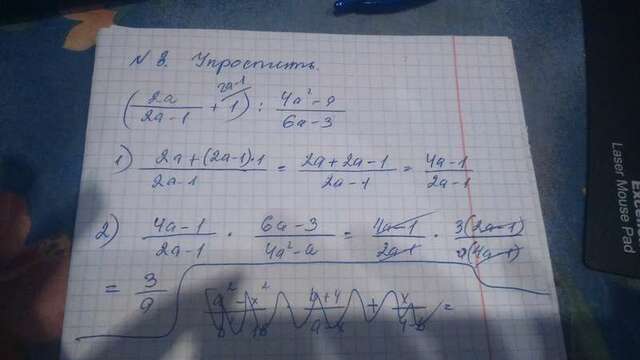 N 3. Упростить.
(2a/2a-1 + 1) : 4a²-a/6a-3
2a-1
1) 2a+(2a-1)·1/2a-1 = 2a+2a-1/2a-1 = 4a-1/2a-1
2) 4a-1/2a-1 · 6a-3/4a²-a = 4a-1/2a-1 · 3(2a-1)/a(4a-1)
= 3/a
Laser Mouse Pad